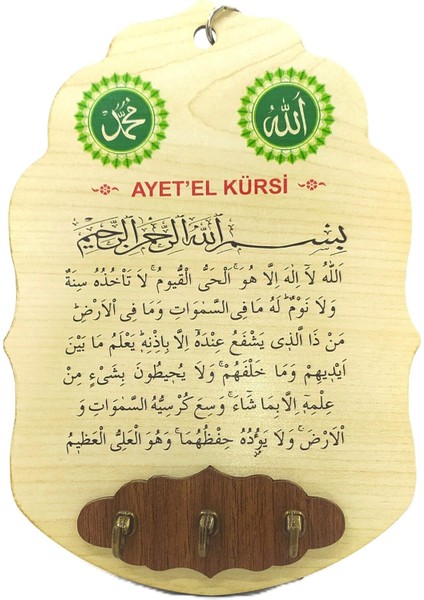 الله محمد
AYET'EL KÜRSİ
بِسْمِ اللهِ الرَّحْمٰنِ الرَّحِيمِ
اَللّٰهُ لَٓا اِلٰهَ اِلَّا هُوَۚ اَلْحَىُّ الْقَيُّومُۚ لَا تَاْخُذُهُ سِنَةٌ
وَلَا نَوْمٌۜ لَهُ مَا فِى السَّمٰوَاتِ وَمَا فِى الْاَرْضِۜ
مَنْ ذَا الَّذٖى يَشْفَعُ عِنْدَهُٓ اِلَّا بِاِذْنِهٖۜ يَعْلَمُ مَا بَيْنَ
اَيْدٖيهِمْ وَمَا خَلْفَهُمْۚ وَلَا يُحٖيطُونَ بِشَىْءٍ مِنْ
عِلْمِهٖٓ اِلَّا بِمَا شَٓاءَۚ وَسِعَ كُرْسِيُّهُ السَّمٰوَاتِ وَ
الْاَرْضَۚ وَلَا يَؤُ۫دُهُ حِفْظُهُمَاۚ وَهُوَ الْعَلِىُّ الْعَظٖيمُ